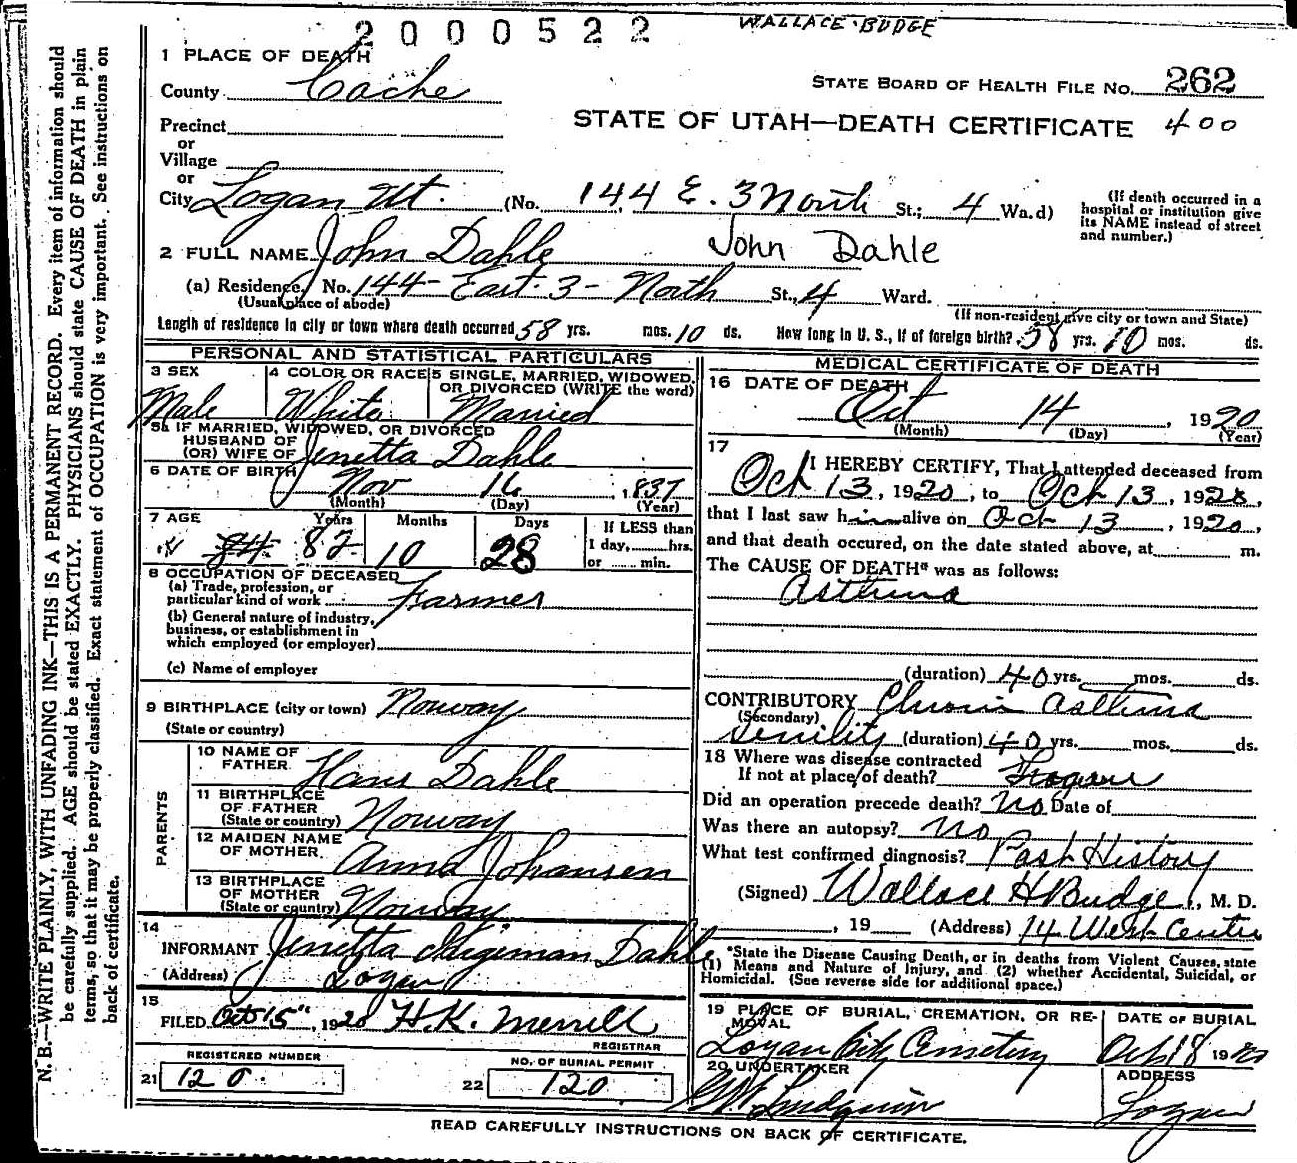 2000522
WALLACE BUDGE
1 PLACE OF DEATH
County Cache
STATE BOARD OF HEALTH FILE No. 262
STATE OF UTAH—DEATH CERTIFICATE 400
Precinct
or
Village
or
City Logan Ut. (No. 144 E. 3 North St.; 4 Wa.d)
(If death occurred in a
hospital or institution give
its NAME instead of street
and number.)
2 FULL NAME John Dahle John Dahle
(a) Residence, No. 144 East 3 North St., 4 Ward.
(Usual place of abode) (If non-resident give city or town and State)
Length of residence in city or town where death occurred 58 yrs. mos. 10 ds. How long in U. S., if of foreign birth? 58 yrs. 10 mos. ds.
PERSONAL AND STATISTICAL PARTICULARS
3 SEX
Male
4 COLOR OR RACE
White
5 SINGLE, MARRIED, WIDOWED,
OR DIVORCED (WRITE the word)
Married
5a IF MARRIED, WIDOWED, OR DIVORCED
HUSBAND OF
(OR) WIFE OF Jenetta Dahle
6 DATE OF BIRTH Nov 16, 1837
(Month) (Day) (Year)
7 AGE Years Months Days
84 82 10 28
If LESS than
1 day, hrs.
or min.
8 OCCUPATION OF DECEASED
(a) Trade, profession, or
particular kind of work Farmer
(b) General nature of industry,
business, or establishment in
which employed (or employer)
(c) Name of employer
9 BIRTHPLACE (city or town) Norway
(State or country)
PARENTS
10 NAME OF
FATHER Hans Dahle
11 BIRTHPLACE
OF FATHER
(State or country) Norway
12 MAIDEN NAME
OF MOTHER Anna Johansen
13 BIRTHPLACE
OF MOTHER
(State or country) Norway
14
INFORMANT Jenetta Dahle
(Address) Logan
15
FILED Oct 15", 1920 H.K. Merrill
REGISTRAR
REGISTERED NUMBER
21 120
NO. OF BURIAL PERMIT
22 120
MEDICAL CERTIFICATE OF DEATH
16 DATE OF DEATH
Oct 14, 1920
(Month) (Day) (Year)
17
I HEREBY CERTIFY, That I attended deceased from
Oct 13, 1920, to Oct 13, 1920,
that I last saw him alive on Oct 13, 1920,
and that death occured, on the date stated above, at m.
The CAUSE OF DEATH* was as follows:
Asthma
(duration) 40 yrs. mos. ds.
CONTRIBUTORY Chronic Asthma
(Secondary)
Senility (duration) 40 yrs. mos. ds.
18 Where was disease contracted
If not at place of death? Logan
Did an operation precede death? No Date of
Was there an autopsy? No
What test confirmed diagnosis? Past History
(Signed) Wallace H Budge, M. D.
, 19 (Address) 14 West Center
*State the Disease Causing Death, or in deaths from Violent Causes, state
(1) Means and Nature of Injury, and (2) whether Accidental, Suicidal, or
Homicidal. (See reverse side for additional space.)
19 PLACE OF BURIAL, CREMATION, OR RE-
MOVAL
Logan City Cemetery
DATE OF BURIAL
Oct 18 1920
20 UNDERTAKER
Lindquist
ADDRESS
Logan
READ CAREFULLY INSTRUCTIONS ON BACK OF CERTIFICATE.
N. B.—WRITE PLAINLY, WITH UNFADING INK—THIS IS A PERMANENT RECORD. Every item of information should
be carefully supplied. AGE should be stated EXACTLY. PHYSICIANS should state CAUSE OF DEATH in plain
terms, so that it may be properly classified. Exact statement of OCCUPATION is very important. See instructions on
back of certificate.